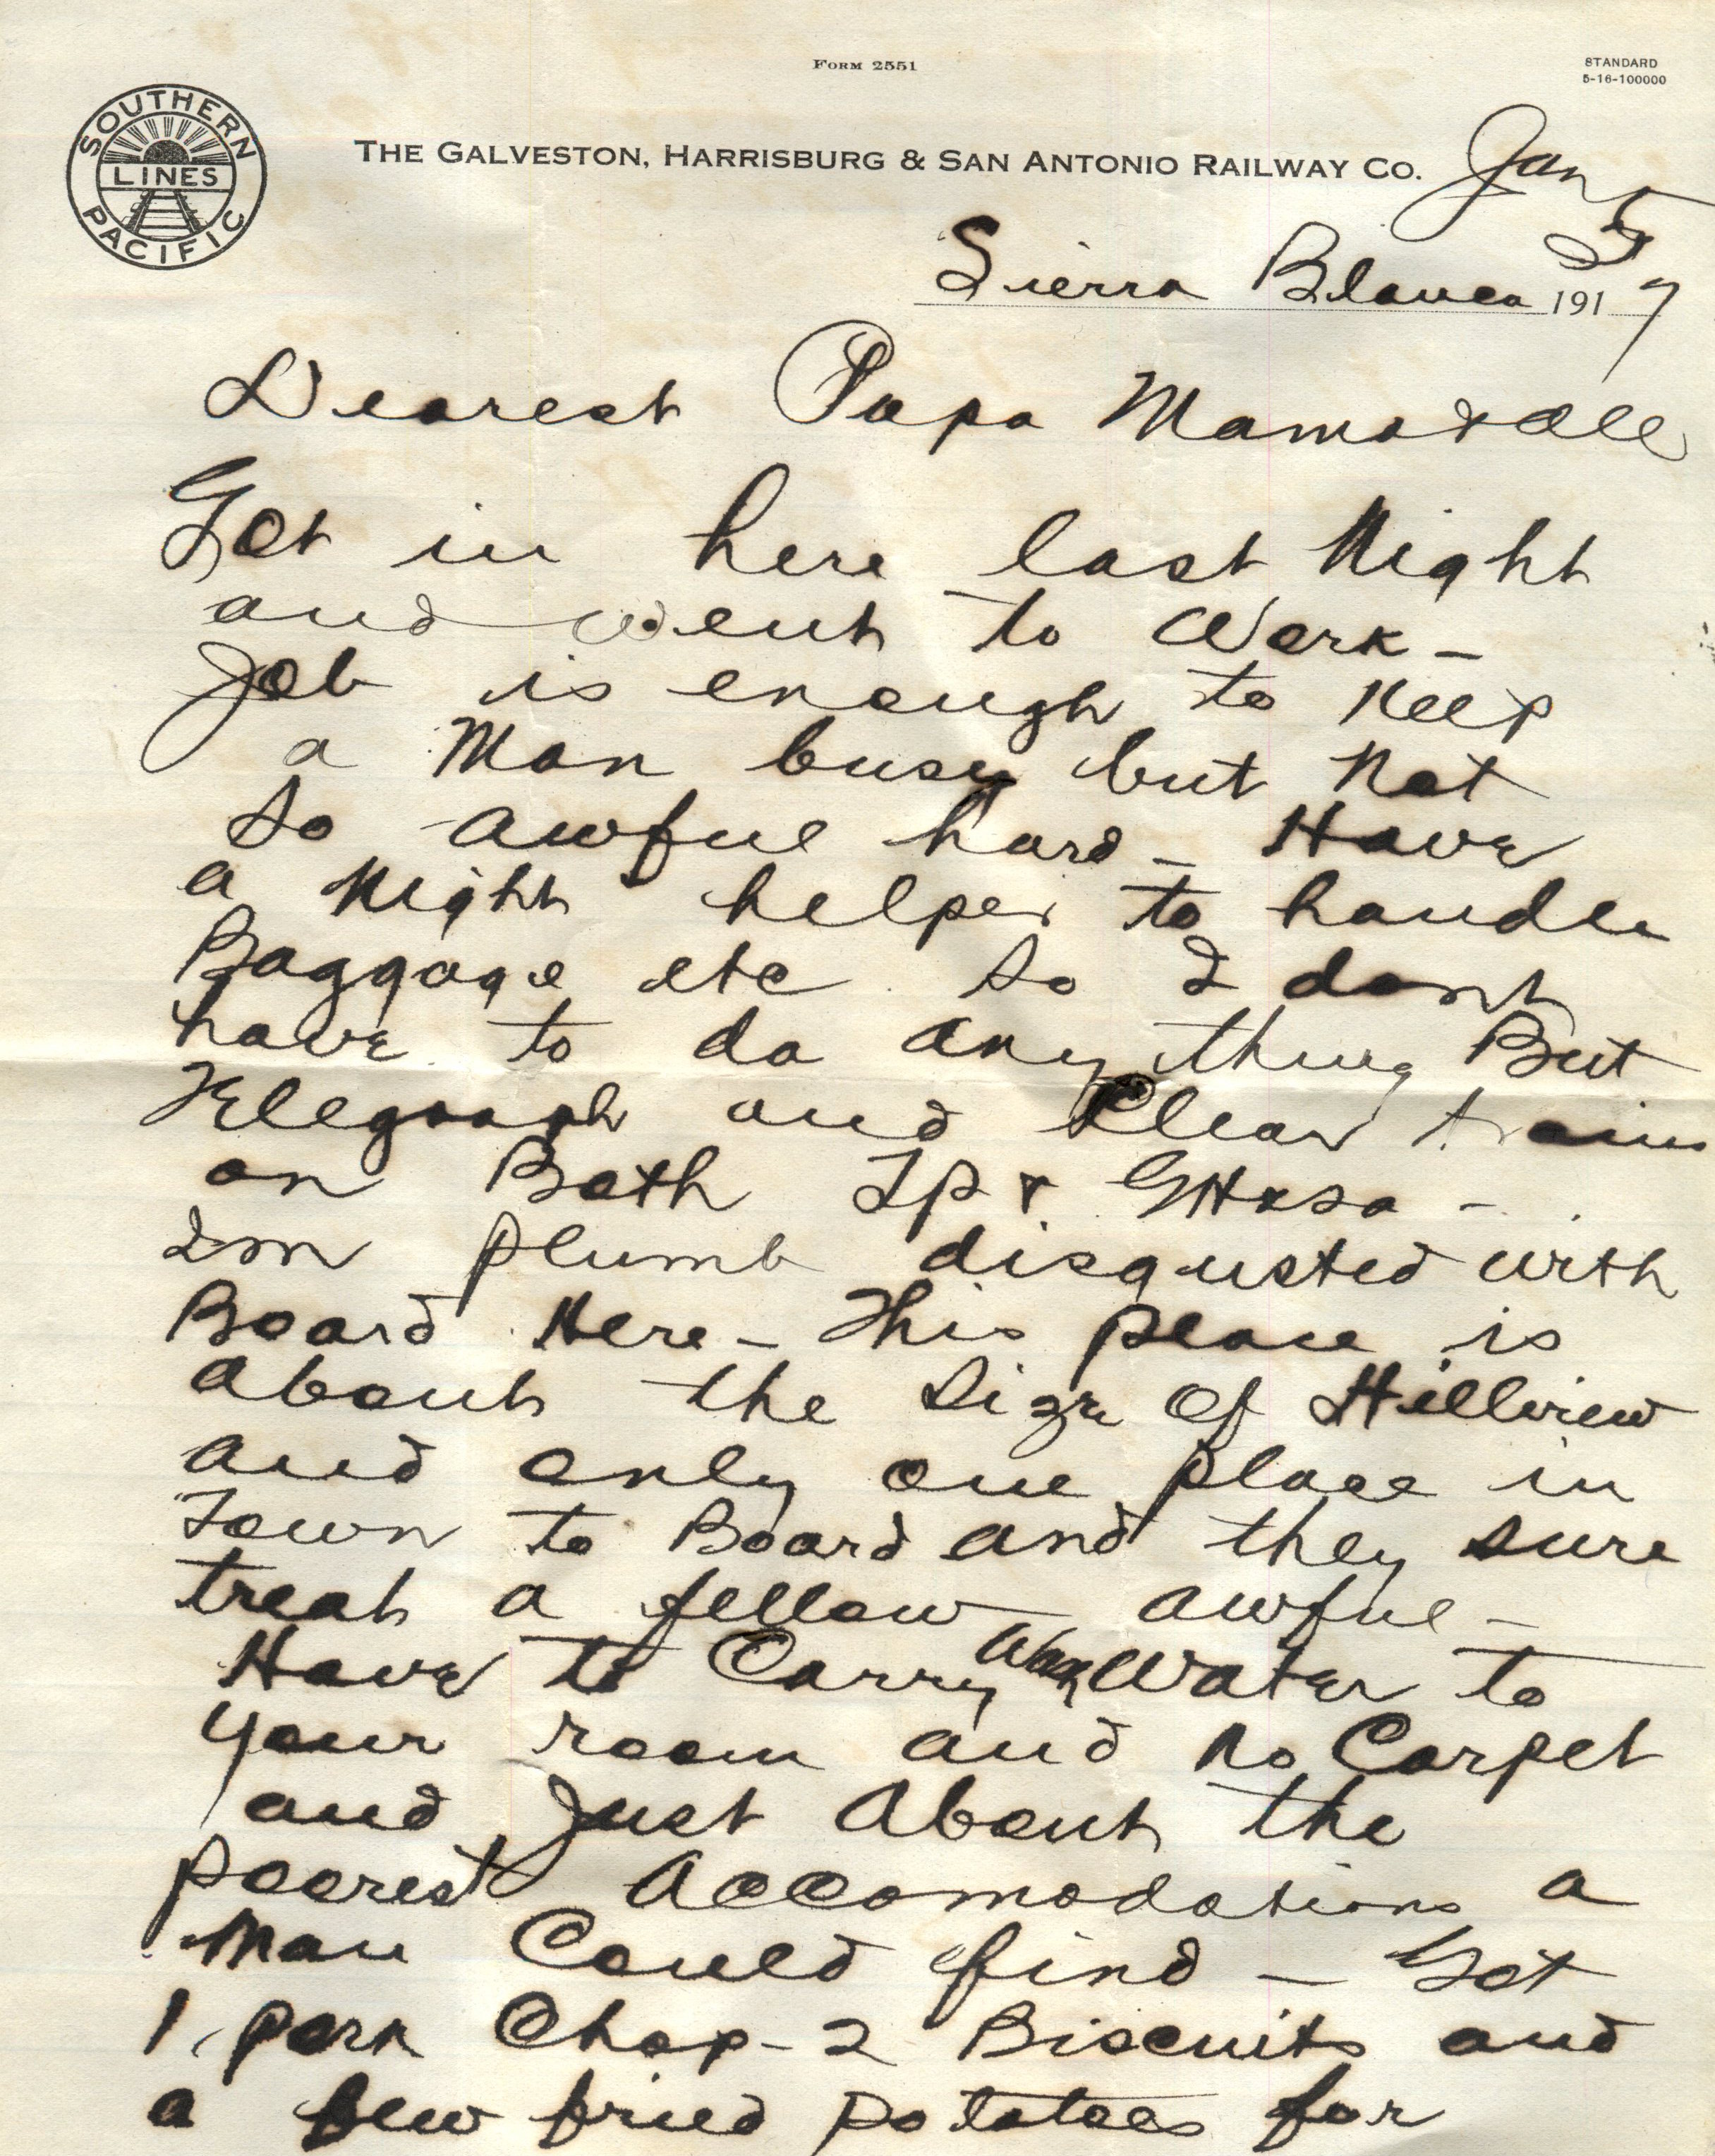 FORM 2551
STANDARD
5-16-100000
SOUTHERN PACIFIC
LINES
THE GALVESTON, HARRISBURG & SAN ANTONIO RAILWAY CO.
Jan 5
Sierra Blanca 1917
Dearest Papa Mama & all
Got in here last Night
and went to Work –
Job is enough to Keep
a Man busy but Not
so awful hard – Have
a Night helper to handle
Baggage etc so I dont
have to do any thing But
Telegraph and Clear trains
on Both TP & GH&SA –
Im plumb disgusted with
Board Here – This place is
about the Size of Hillview
and only one place in
Town to Board and they sure
treat a fellow awful –
Have to Carry Water to
your room and No Carpet
and Just About the
poorest Accomodations a
Man Could find – Got
1 pork Chop – 2 Biscuits and
a few fried potatoes for